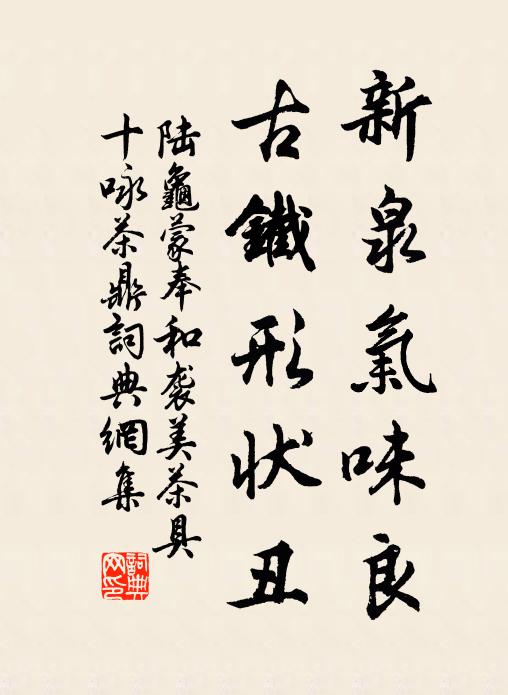 新泉氣味良
古鐵形狀丑
陆龜蒙奉和袭美茶具
十咏茶鼎詞典網集
詞典网印